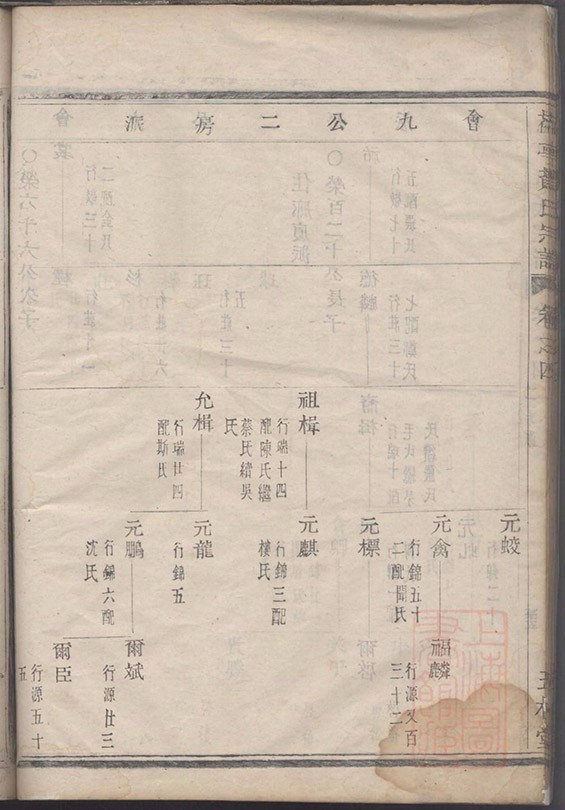 會九公二房派
元蛟
元禽
行錦五十
二配間氏
福麟
行源又百
三十二
元標
祖楫
行瑞十四
配陳氏繼
蔡氏續吳
氏
元麒
行錦三配
樓氏
允楫
行瑞廿四
配斯氏
元龍
行錦五
元鵬
行錦六配
沈氏
爾斌
行源廿三
爾臣
行源五十
五
氏宗譜
卷之四